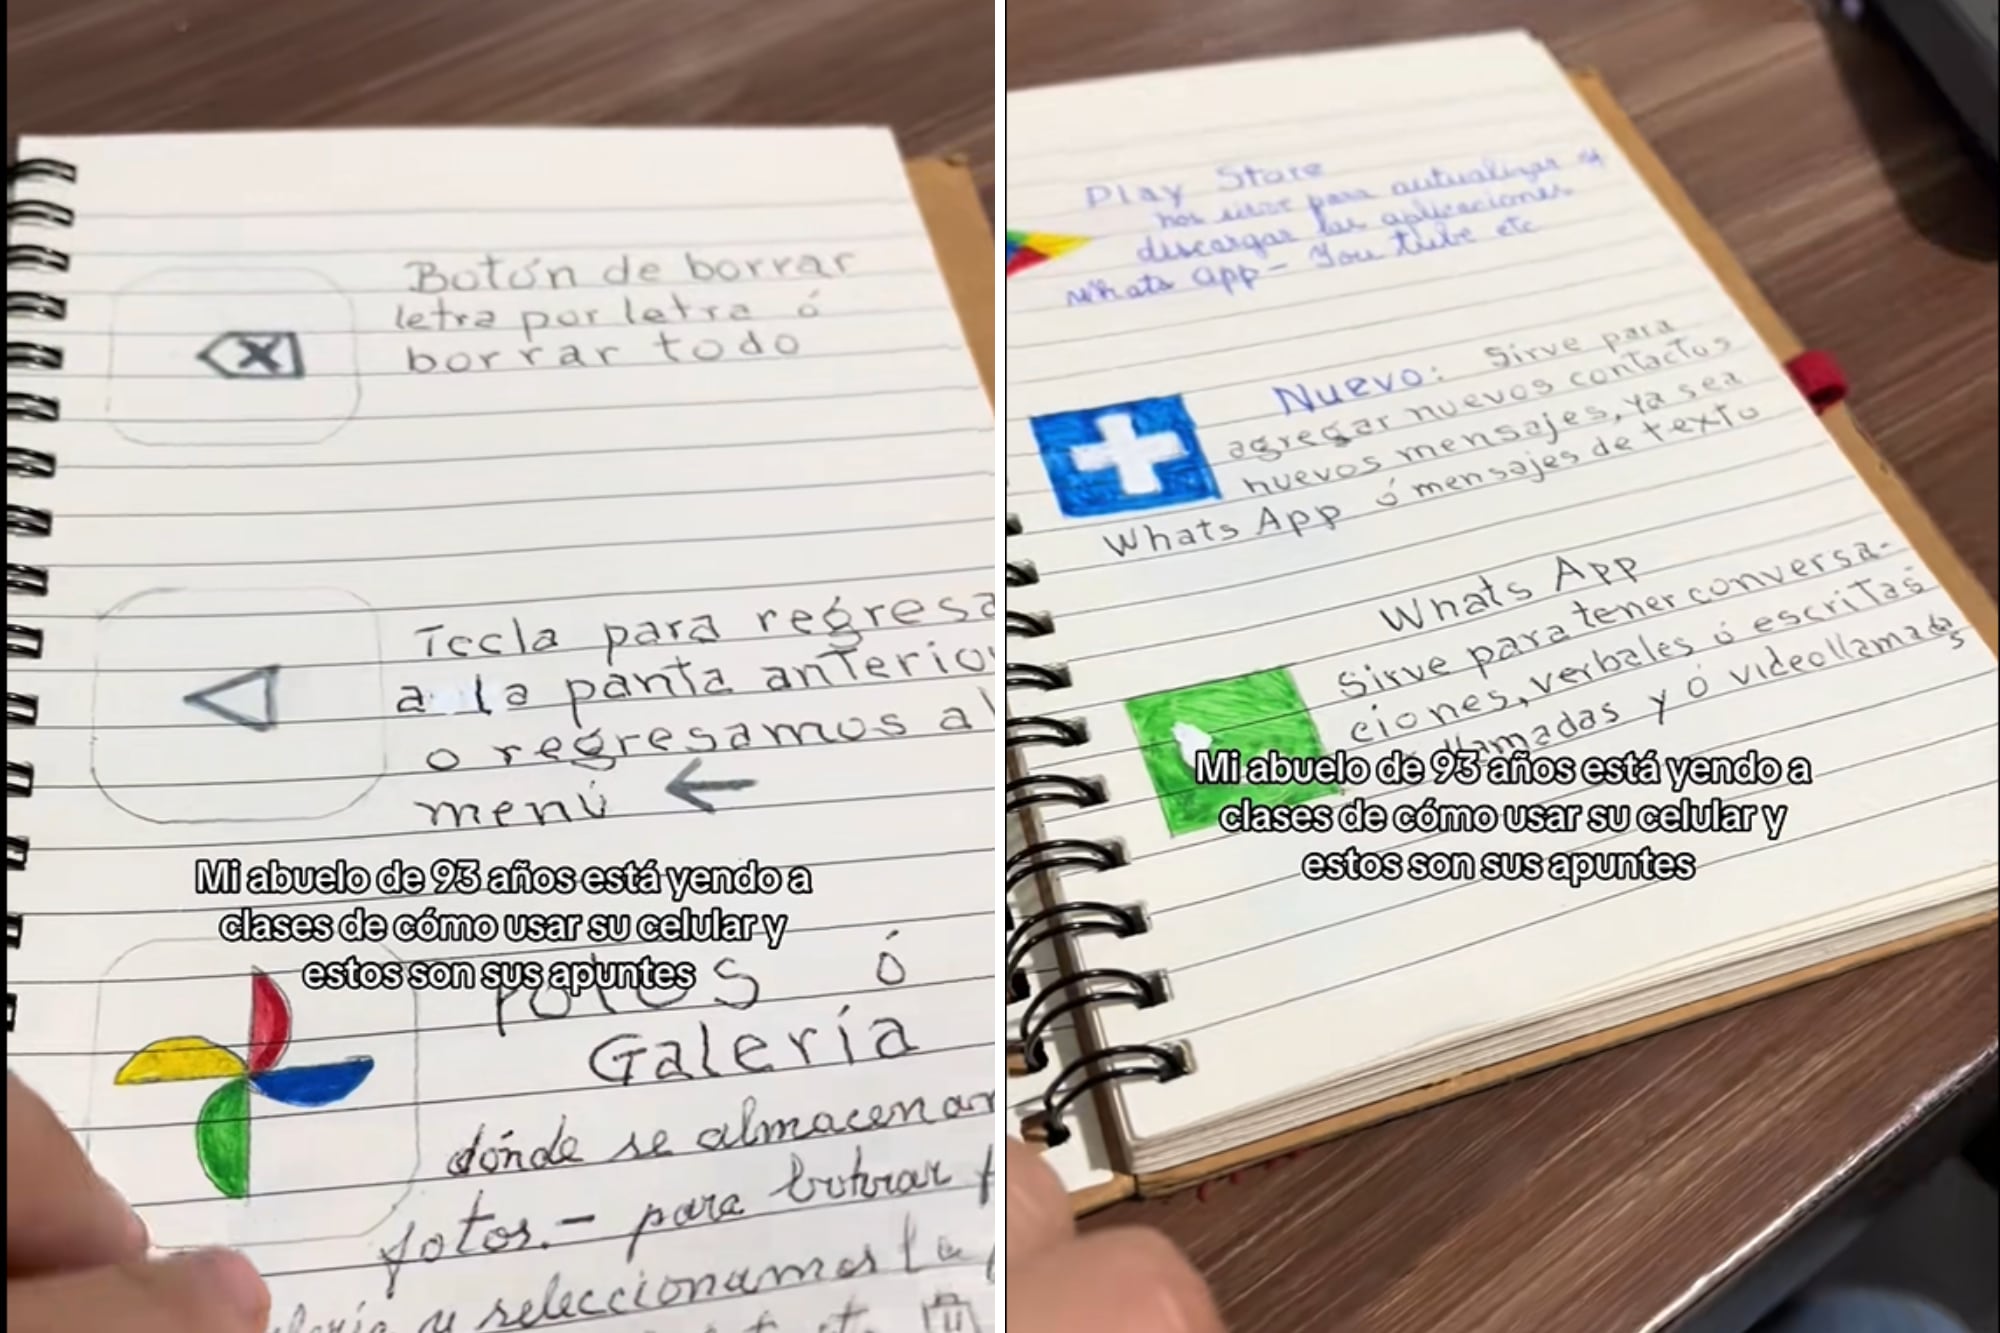 Botón de borrar
letra por letra ó
borrar todo
Tecla para regresa
a la panta anterior
o regresamos al
menú ←
Mi abuelo de 93 años está yendo a
clases de cómo usar su celular y
estos son sus apuntes
Fotos ó
Galería
dónde se almacenan
fotos.- para borrar f
y seleccionamos la
Play Store
nos sirve para actualizar
descargar las aplicaciones
Whats app - You tube etc
Nuevo: Sirve para
agregar nuevos contactos
nuevos mensajes, ya sea
Whats App ó mensajes de texto
Whats App
Sirve para tener conversa-
ciones, verbales ó escritas
llamadas y ó videollamadas
Mi abuelo de 93 años está yendo a
clases de cómo usar su celular y
estos son sus apuntes